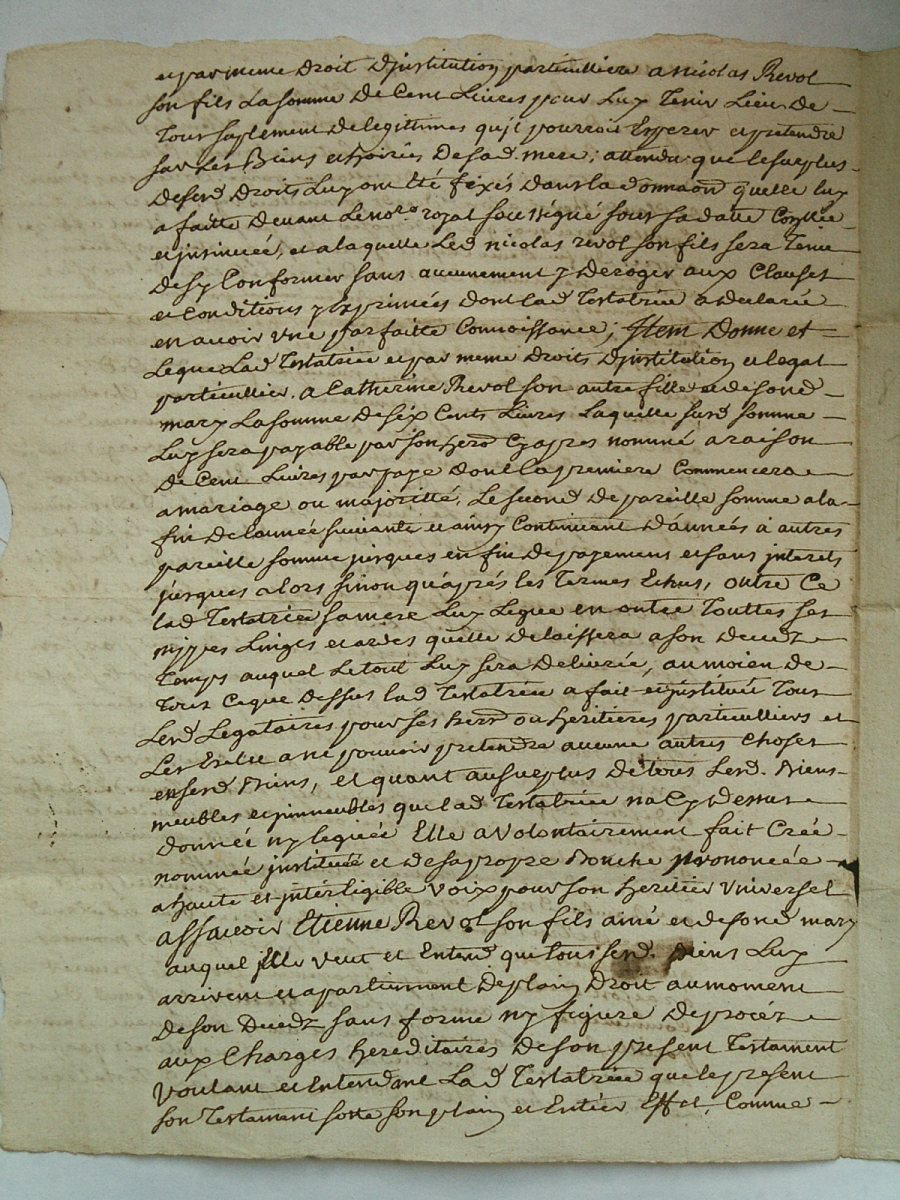 et par meme droit d'jnstitution particulliere a nicolas Revol
son fils La somme de Cent Livres pour Luy Tenir Lieu de
Tout suplement de legittimes qu'jl pourroit Esperer et pretendre
sur Les Biens et hoiries de sad. mere; attendu que le surplus
desd. Droits Luy ont Eté fixés dans la donnaon quelle luy
a faitte devant Le nore royal soussigné sous sa datte Conllée
et jnsinuée, et a laquelle Led. nicolas revol son fils sera Tenu
de sy Conformer sans aucunement y deroger aux Clauses
et Conditions y Exprimées dont lad. Testatrice a declarée
en avoir une parfaitte Connoissance; Jtem Donne et
Legue Lad. Testatrice et par meme Droits d'jnstitution et legat
particullier, a Catherine Revol son autre fille et de sond.
mary La somme de six Cents Livres Laquelle susd. somme
Luy sera payable par son herer Cyapres nommé a raison
de Cent Livres par paye dont la premiere Commencera
a mariage ou majoritté, Le second de pareille somme a la
fin de lannée suivante et ainsy Continuant d'années à autres
pareille somme jusques en fin de payement et sans jnterets
jusques alors sinon qu'après les Termes Echus, outre Ce
lad. Testatrice sa mere Luy Legue en outre Touttes ses
nipyes Linges et ardes quelle delaissera a son decedz
Temps auquel Le tout Luy sera delivrée, au moien de
Tout Ceque dessus lad. Testatrice a fait et jnstitué Tous
Lesd. Legataires pour ses herrs ou heritieres particulliers et
Les Exclue a ne pouvoir pretendre aucune autres Choses
en sesd. Biens, et quant au surplus de tous sesd. Biens
meubles et jmmeubles que lad. Testatrice na Cy dessus
donnée ny leguée Elle a volontairement fait Créé
nommée jnstituée et de sa propre Bouche prononcée
a haute et jntelligible voix pour son heritier Universel
assavoir Etienne Revol son fils ainé et de sond. mary
auquel jlle veut et Entend que tous sesd. Biens Luy
arrivent et apartiennent de plain Droit au moment
de son Decedz sans forme ny figure de procéz
aux Charges hereditaires de son present Testament
Voulant et Entendant Lad. Testatrice que le present
son Testament sorte son plain et Entier Effet, Comme